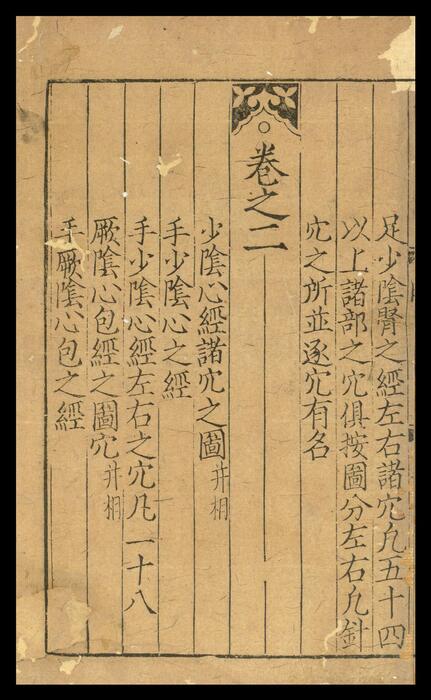 足少陰腎之經左右諸穴凡五十四
以上諸部之穴俱按圖分左右凡針
穴之所並逐穴有名
卷之二
少陰心經諸穴之圖并相
手少陰心之經
手少陰心經左右之穴凡一十八
厥陰心包經之圖穴并相
手厥陰心包之經